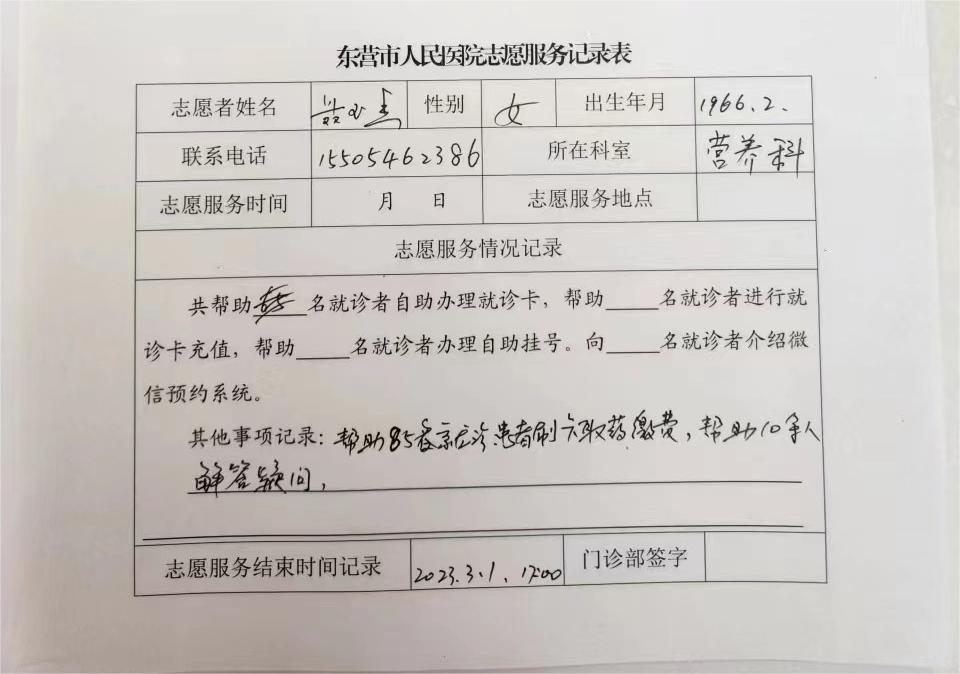 东营市人民医院志愿服务记录表
志愿者姓名 性别 女 出生年月 1966.2.
联系电话 15505462386 所在科室 营养科
志愿服务时间 月 日 志愿服务地点
志愿服务情况记录
共帮助 名就诊者自助办理就诊卡，帮助_____名就诊者进行就
诊卡充值，帮助_____名就诊者办理自助挂号。向_____名就诊者介绍微
信预约系统。
其他事项记录：帮助85 患者刷卡取药缴费，帮助10余人
解答疑问，
志愿服务结束时间记录 2023.3.1. 17:00 门诊部签字